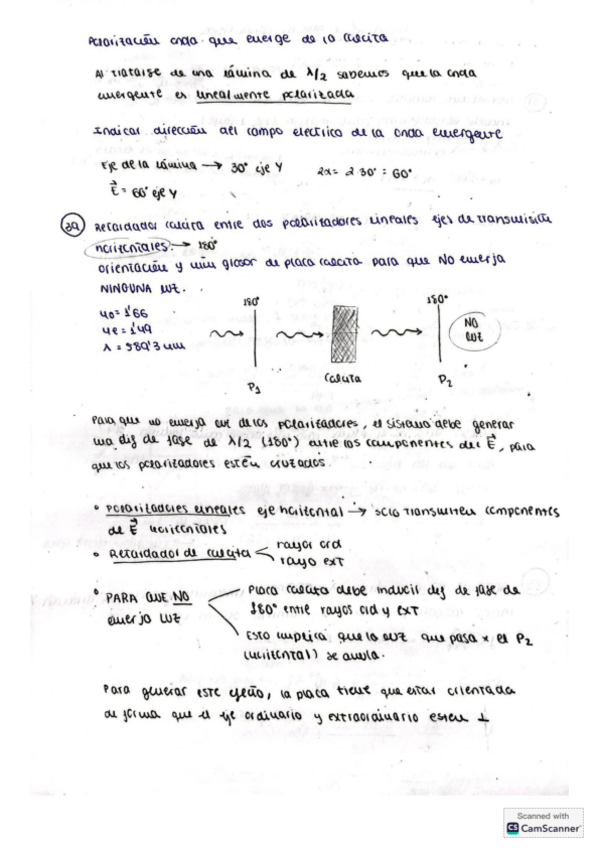 Polarización onda que emerge de la calcita
Al tratarse de una lámina de λ/2 sabemos que la onda
emergente es linealmente polarizada
Indicar dirección del campo electrico de la onda emergente
Eje de la lámina → 30° eje Y 2α = 2·30° = 60°
E⃗ = 60° eje Y
39 Retardador calcita entre dos polarizadores lineales ejes de transmisión
horizontales. → 180°
orientación y mín grosor de placa calcita para que NO emerja
NINGUNA luz.
180° 180°
no = 1'66
ne = 1'49
λ = 589'3 nm
NO
luz
P1 Calcita P2
Para que no emerja luz de los polarizadores, el sistema debe generar
una dif de fase de λ/2 (180°) entre las componentes del E⃗, para
que los polarizadores estén cruzados.
• Polarizadores lineales eje horizontal → solo transmiten componentes
de E⃗ horizontales
• Retardador de calcita < rayo ord
rayo EXT
• PARA QUE NO
emerja luz
Placa calcita debe inducir dif de fase de
180° entre rayos ord y ext
Esto implica que la luz que pasa x el P2
(horizontal) se anula.
Para generar este efecto, la placa tiene que estar orientada
de forma que el eje ordinario y extraordinario esten ⊥
Scanned with
CS CamScanner